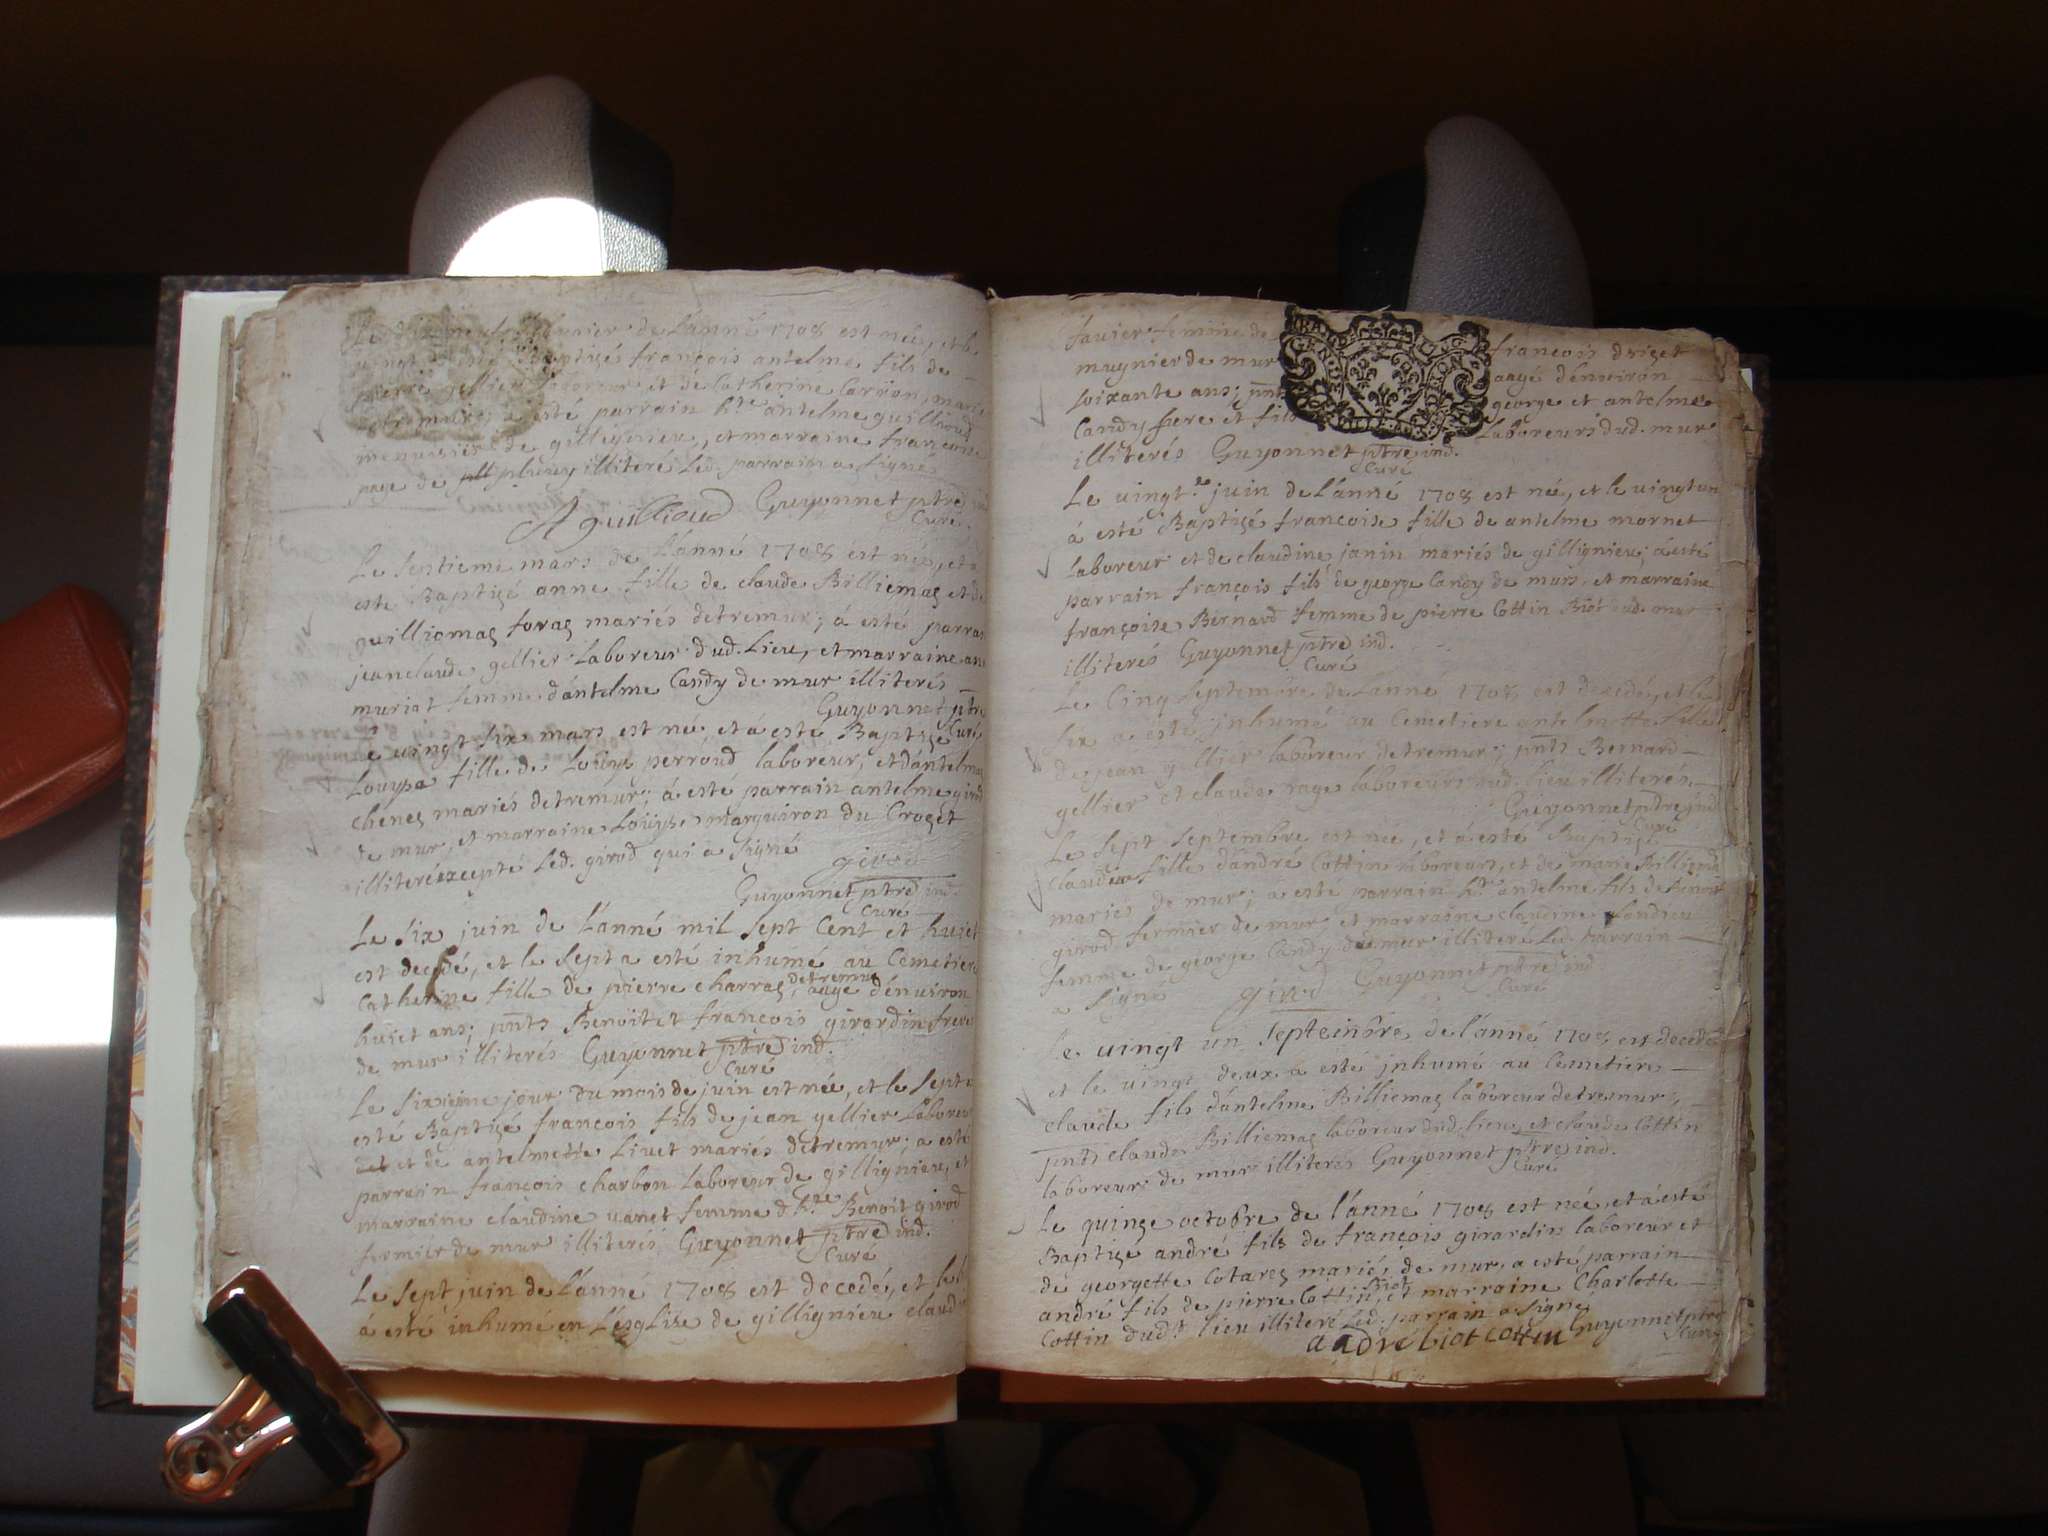 Le dixneuf febvrier de L'anné 1708 est née, et le
vingt esté Baptizés françois antelme fils de
pierre gellier Laboreur et de Catherine Carrion, marié
detremur; a esté parrain h.te antelme guillioud
menuisier de gillignieu, et marraine francoise
page de illiteré Led. parrain a signé
Aguillioud Guyonnet ptre ind
Curé
Le septieme mars de L'anné 1708 est née, et a
esté Baptizé anne fille de claude Billiemaz et de
guilliemaz foraz mariés detremur; á esté parra
jeanclaude gellier Laboreur dud. Lieu, et marraine an
muriat femme dántelme Candy de mur illiterés
Guyonnet ptre
Curé
Le vingt six mars est né, et á esté Baptizé
Louysa fille de Louys perroud laboreur, et dántelma
chenez mariés detremur; á esté parrain antelme girod
de mur, et marraine Louyse marguiron du Crozet
illiteré excepté Led. girod qui a signé
girod
Guyonnet ptre ind.
Curé
Le six juin de L'anné mil sept Cent et huict
est decedé, et le sept a esté inhumé au Cemetiere
detremur
Catherine fille de pierre charraz, aagé dénviron
huict ans; pnts Benoit et françois girardin freres
de mur illiterés Guyonnet ptre ind.
Curé
Le sixieme jour du mois de juin est née, et le sept a
esté Baptizé françois fils de jean gellier Laboreur
et de antelmette Livet mariés detremur; a esté
parrain françois charbon Laboreur de gillignieu, et
marraine claudine vanet femme d h.te Benoit girod
fermier de mur illiterés Guyonnet ptre ind.
Curé
Le sept juin de L'anné 1708 est decedé, et le
á esté inhumé en L'esglize de gillignieu claud
favier femme de françois drizet
mugnier de mur aagé dénviron
soixante ans; pnts george et antelme
Candy frere et fils Laboreurs dud. mur
illiterés Guyonnet ptre ind.
Curé
Le vingt.e juin de L'anné 1708 est né, et le vingtun
á esté Baptizé francoise fille de antelme mornet
Laboreur et de claudine janin mariés de gillignieu; á esté
parrain françois fils de george Candy de murs, et marraine
françoise Bernard femme de pierre Cottin Biot dud. mur
illiterés Guyonnet ptre ind.
Curé
Le Cinq septembre de L'anné 1708 est decedé, et le
six a esté inhumé au Cemetiere antelmette fille
de jean gellier laboreur detremur; pnts Bernard
gellier et claude page laboreurs dud. lieu illiterés
Guyonnet ptre ind
Curé
Le sept septembre est née, et á esté Baptizé
claudia fille dándré Cottin laboreur, et de marie Billiemaz
mariés de mur; á esté parrain h.te antelme fils de benoit
girod fermier de mur, et marraine claudine
femme de george Candy de mur illiteré Led. parrain
a signé girod Guyonnet ptre ind
Curé
Le vingt un septembre de L'anné 1708 est decedé
et le vingt deux a esté inhumé au Cemetiere
claude fils dántelme Billiemaz laboreur detremur;
pnts claude Billiemaz laboreur dud. lieu, et claude Cottin
laboreur de mur illiterés Guyonnet ptre ind.
Curé
Le quinze octobre de L'anné 1708 est né, et á esté
Baptizé andré fils de françois girardin laboreur et
de georgette Cotarez mariés de mur, a esté parrain
Biot
andré fils de pierre Cottin, et marraine Charlotte
Cottin dud.t lieu illiteré Led. parrain a signé
andré biot cottin Guyonnet ptre
Curé